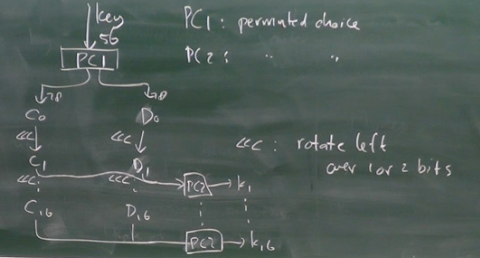 key
56
PC1
28 28
C0 D0
<<< <<<
C1 D1
<<< <<<
PC2 k1
C16 D16
PC2 k16
PC1: permuted choice
PC2: " "
<<<: rotate left
over 1 or 2 bits